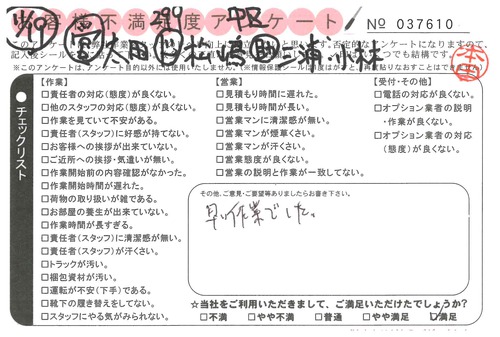 お客様不満足度アンケート
No 037610
チェックリスト
【作業】
□責任者の対応(態度)が良くない。
□他のスタッフの対応(態度)が良くない。
□作業を見ていて不安がある。
□責任者(スタッフ)に好感が持てない。
□お客様への挨拶が出来ていない。
□ご近所への挨拶・気遣いが無い。
□作業開始前の内容確認がなかった。
□作業開始時間が遅れた。
□荷物の取り扱いが雑である。
□お部屋の養生が出来ていない。
□作業時間が長すぎる。
□責任者(スタッフ)に清潔感が無い。
□責任者(スタッフ)が汗くさい。
□トラックが汚い。
□梱包資材が汚い。
□運転が不安(下手)である。
□靴下の履き替えをしてない。
□スタッフにやる気がみられない。
【営業】
□見積もり時間に遅れた。
□見積もり時間が長い。
□営業マンに清潔感が無い。
□営業マンが煙草くさい。
□営業マンが汗くさい。
□営業態度が良くない。
□営業の説明と作業が一致してない。
【受付・その他】
□電話の対応が良くない。
□オプション業者の説明
・作業が良くない。
□オプション業者の対応
(態度)が良くない。
その他、ご意見・ご要望等ありましたらお書き下さい。
早い作業でした。
☆当社をご利用いただきまして、ご満足いただけたでしょうか?
□不満 □やや不満 □普通 □やや満足 ☑満足